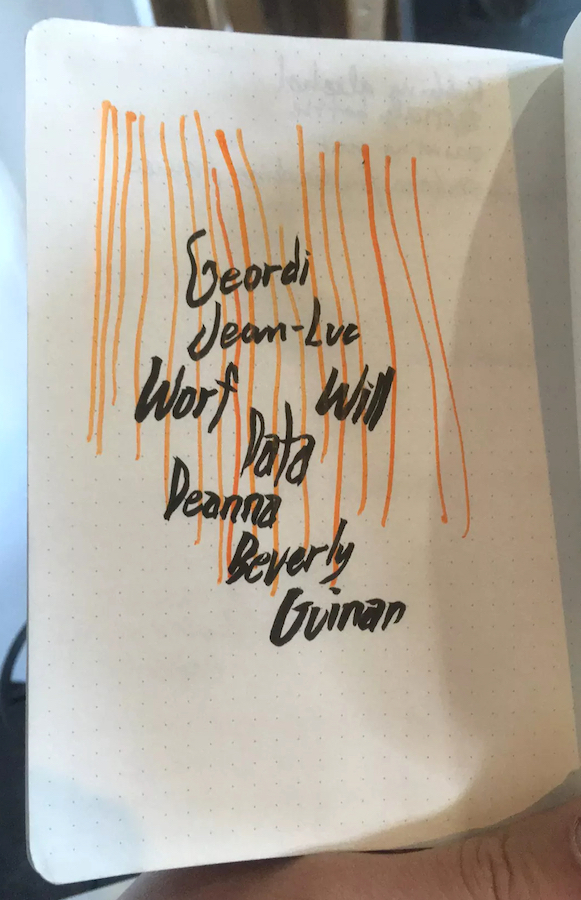 Geordi
Jean-Luc
Worf Will
Data
Deanna
Beverly
Guinan